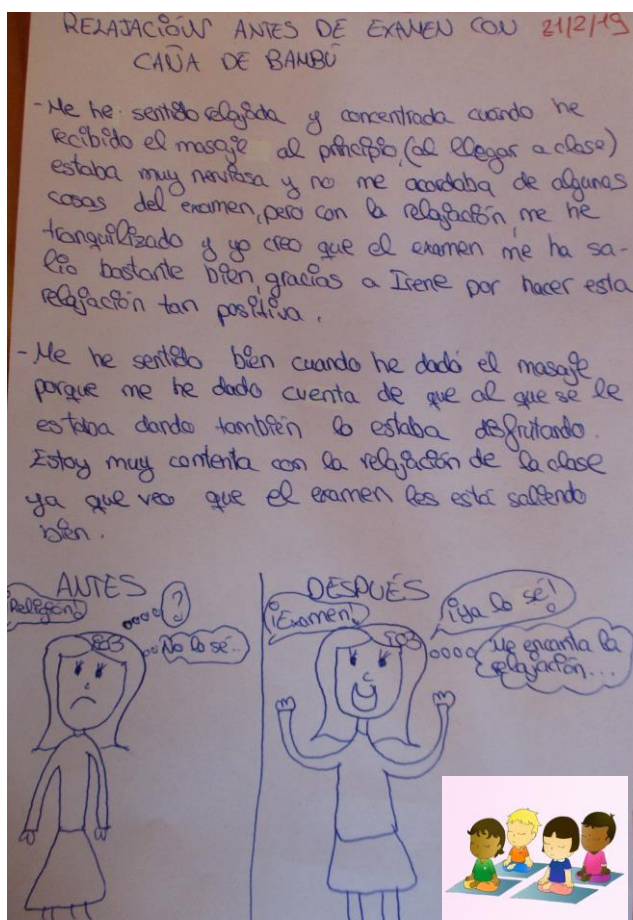 RELAJACIÓN ANTES DE EXAMEN CON 21/2/19
CAÑA DE BAMBÚ
- Me he sentido relajada y concentrada cuando he
recibido el masaje al principio, (al llegar a clase)
estaba muy nerviosa y no me acordaba de algunas
cosas del examen, pero con la relajación, me he
tranquilizado y yo creo que el examen me ha sa-
lio bastante bien, gracias a Irene por hacer esta
relajación tan positiva.
- Me he sentido bien cuando he dado el masaje
porque me he dado cuenta de que al que se le
estaba dando también lo estaba disfrutando.
Estoy muy contenta con la relajación de la clase
ya que veo que el examen les está saliendo
bien.
ANTES
Religión!
?
No lo sé..
DESPUÉS
¡Examen!
¡ya lo sé!
Me encanta la
relajación...